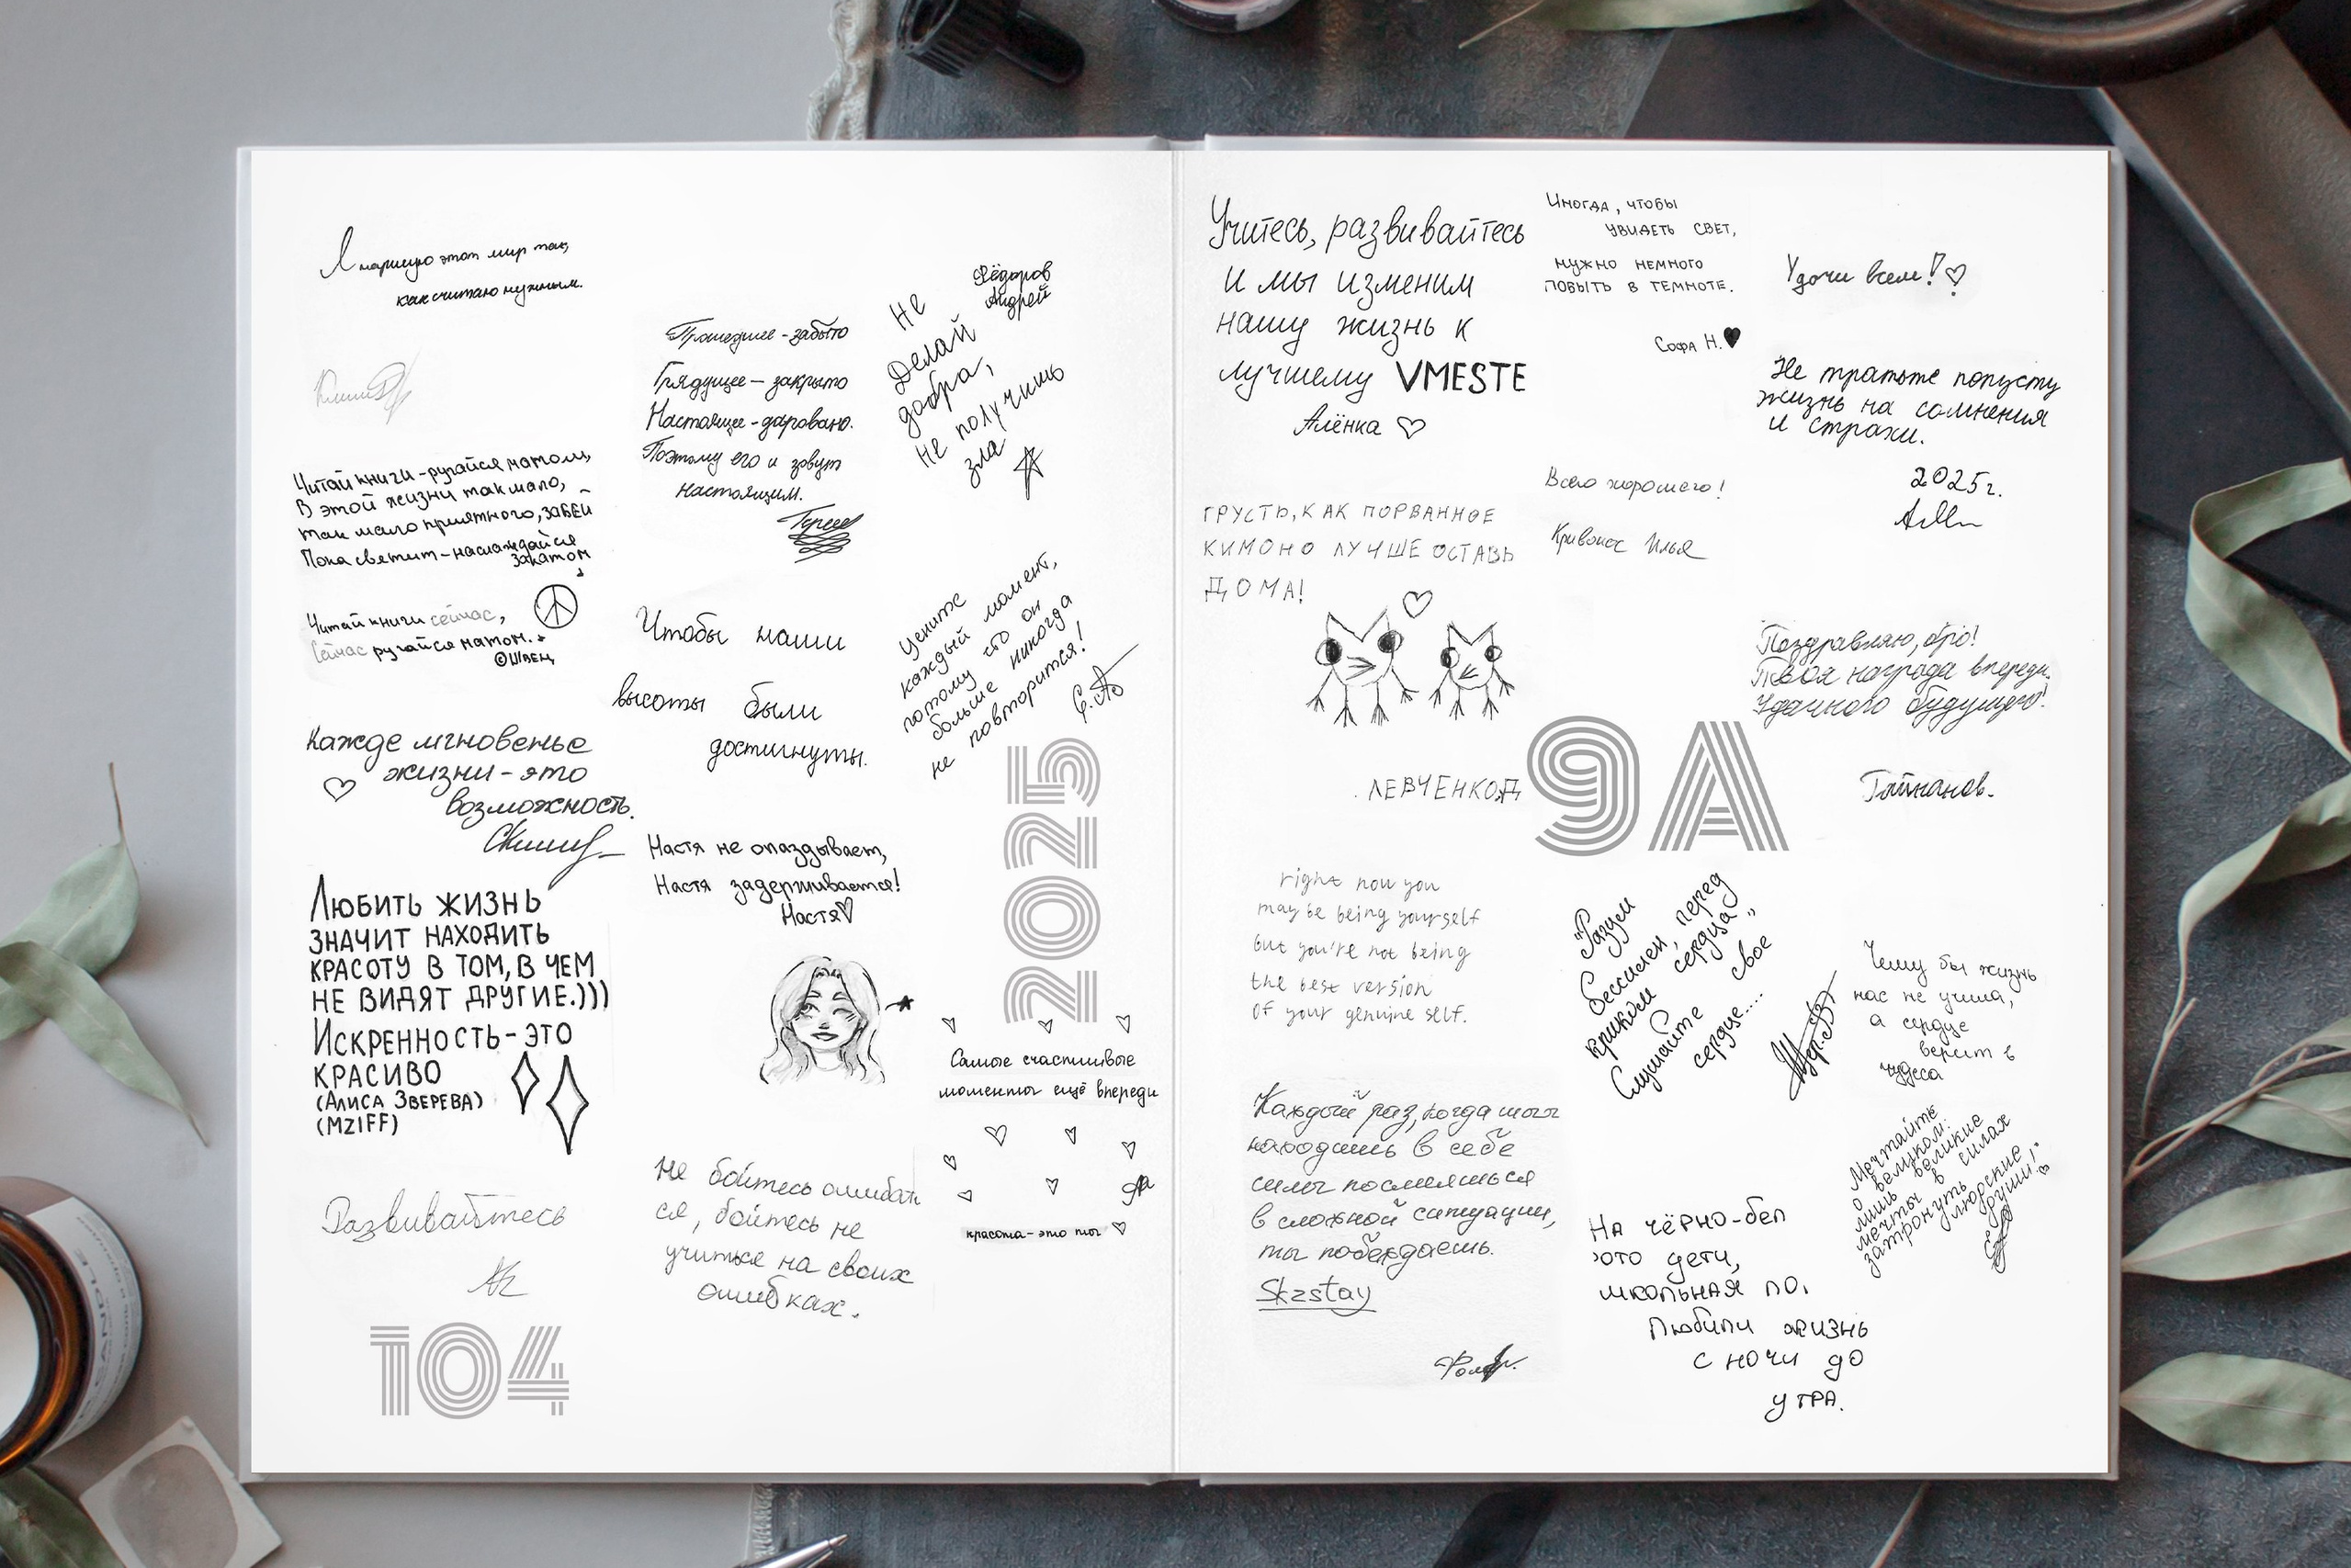 Я нарисую этот мир так,
как считаю нужным.
Читай книги - ругайся матом,
В этой жизни так мало,
так мало приятного, забей
Пока светит - наслаждайся
закатом
Читай книги сейчас,
Сейчас ругайся матом.
©ШВЕЦ
Кажде мгновенье
жизни - это
возможность.
Любить жизнь
значит находить
красоту в том, в чем
не видят другие.)))
Искренность - это
красиво
(Алиса Зверева)
(MZIFF)
Развивайтесь
104
Прошедшее - забыто
Грядущее - закрыто
Настоящее - даровано.
Поэтому его и зовут
настоящим.
Чтобы наши
высоты были
достигнуты.
Настя не опаздывает,
Настя задерживается!
Настя
Не бойтесь ошибать
ся, бойтесь не
учиться на своих
ошибках.
Фёдоров
Андрей
Не
Делай
добра,
не получишь
зла
Цените
каждый момент,
потому что он
больше никогда
не повторится!
2025
Самые счастливые
моменты ещё впереди
красота - это ты
Учитесь, развивайтесь
и мы изменим
нашу жизнь к
лучшему VMESTE
Алёнка
ГРУСТЬ, КАК ПОРВАННОЕ
КИМОНО ЛУЧШЕ ОСТАВЬ
ДОМА!
ЛЕВЧЕНКО Д
9А
right now you
may be being yourself
but you're not being
the best version
of your genuine self.
Каждый раз, когда ты
находишь в себе
силы посмеяться
в сложной ситуации,
ты побеждаешь.
Skzstay
Иногда, чтобы
увидеть свет,
нужно немного
побыть в темноте.
Софа Н.
Всего хорошего!
Кривонос Илья
"Разум
бессилен, перед
криком сердца"
Слушайте свое
сердце....
На чёрно-бел
это дети,
школьная по.
Любили жизнь
с ночи до
утра.
Удачи всем!
Не тратьте попусту
жизнь на сомнения
и страхи.
2025г.
Поздравляю, бро!
Твоя награда впереди.
Удачного будущего!
Гайнанов.
Чему бы жизнь
нас не учила,
а сердце
верит в
чудеса
Мечтайте
о великом:
лишь великие
мечты в силах
затронуть людские
души!"